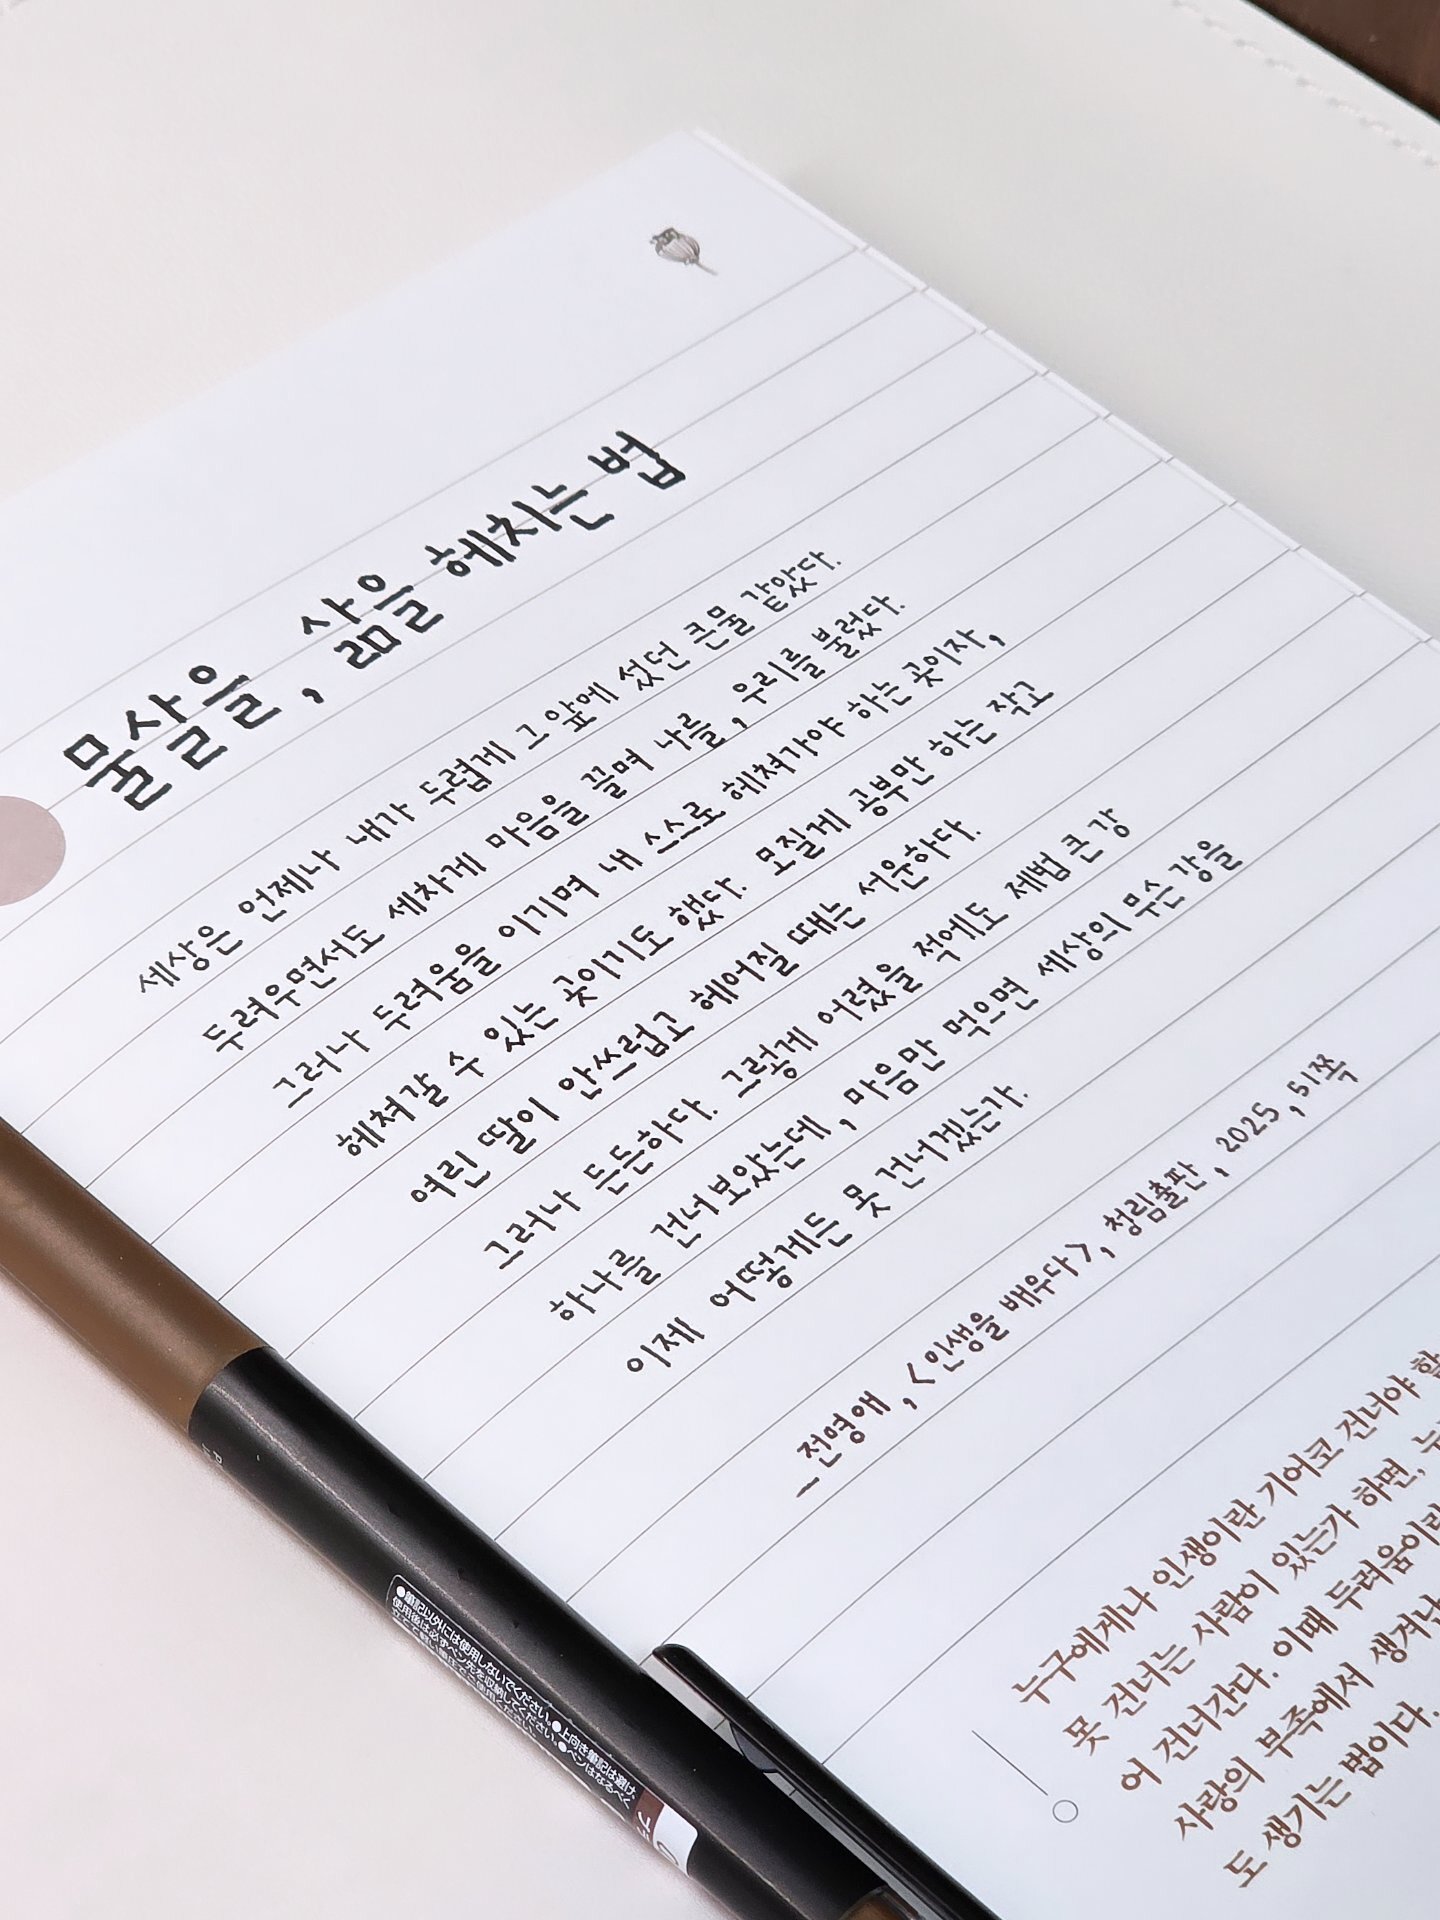 물살을, 삶을 헤치는 법
세상은 언제나 내가 두렵게 그 앞에 섰던 큰물 같았다.
두려우면서도 세차게 마음을 끌며 나를, 우리를 불렀다.
그러나 두려움을 이기며 내 스스로 헤쳐가야 하는 곳이자,
헤쳐갈 수 있는 곳이기도 했다. 모질게 공부만 하는 작고
여린 딸이 안쓰럽고 헤어질 때는 서운하다.
그러나 든든하다. 그렇게 어렸을 적에도 제법 큰 강
하나를 건너보았는데, 마음만 먹으면 세상의 무슨 강을
이제 어떻게든 못 건너겠는가.
_전영애, <인생을 배우다>, 청림출판, 2025, 51쪽
누구에게나 인생이란 기어코 건너야 할
못 건너는 사람이 있는가 하면,
어 건너간다. 이때 두려움이란
사랑의 부족에서 생겨난
도 생기는 법이다.
●筆記以外には使用しないでください。●上向き筆記は避け、
使用後は必ずペン先を収納してください。●ペンはなるべく
立てて軽い筆圧でご使用ください。